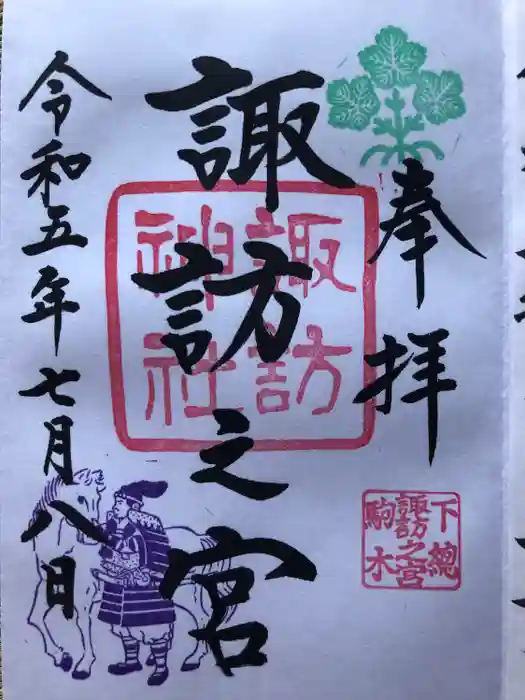 奉拝
諏訪之宮
諏訪
神社
下總
諏訪之宮
駒木
令和五年七月八日